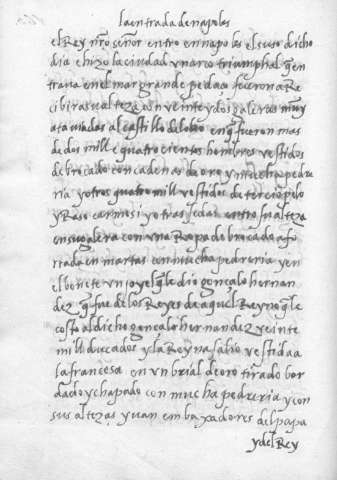 la entrada de napoles
el Rey nro señor entro en napoles el suso dicho
dia e hizo la ciudad vn arco triumphal q en
traua en el mar grande pedaço fueron a Re
cibir a su alteza con veinte y dos galeras muy
ataviadas al castillo del obo en q fueron mas
de dos mill e quatrocientos hombres vestidos
de brocado con cadenas de oro y mucha pedre
ria y otros quatro mill vestidos de terciopelo
y Raso carmesi y otras sedas entro su alteza
en su galera con vna Ropa de brocado afo
rrada en martas con mucha pedreria y en
el bonete vn joyel q le dio gonçalo hernan
dez q fue de los Reyes de aquel Reyno q le
costo al dicho gonçalo hernandez veinte
mill ducados y la Reyna salio vestida a
la francesa en vn brial de oro tirado bor
dado y chapado con mucha pedreria y con
sus altezas yuan embaxadores del papa
y del Rey